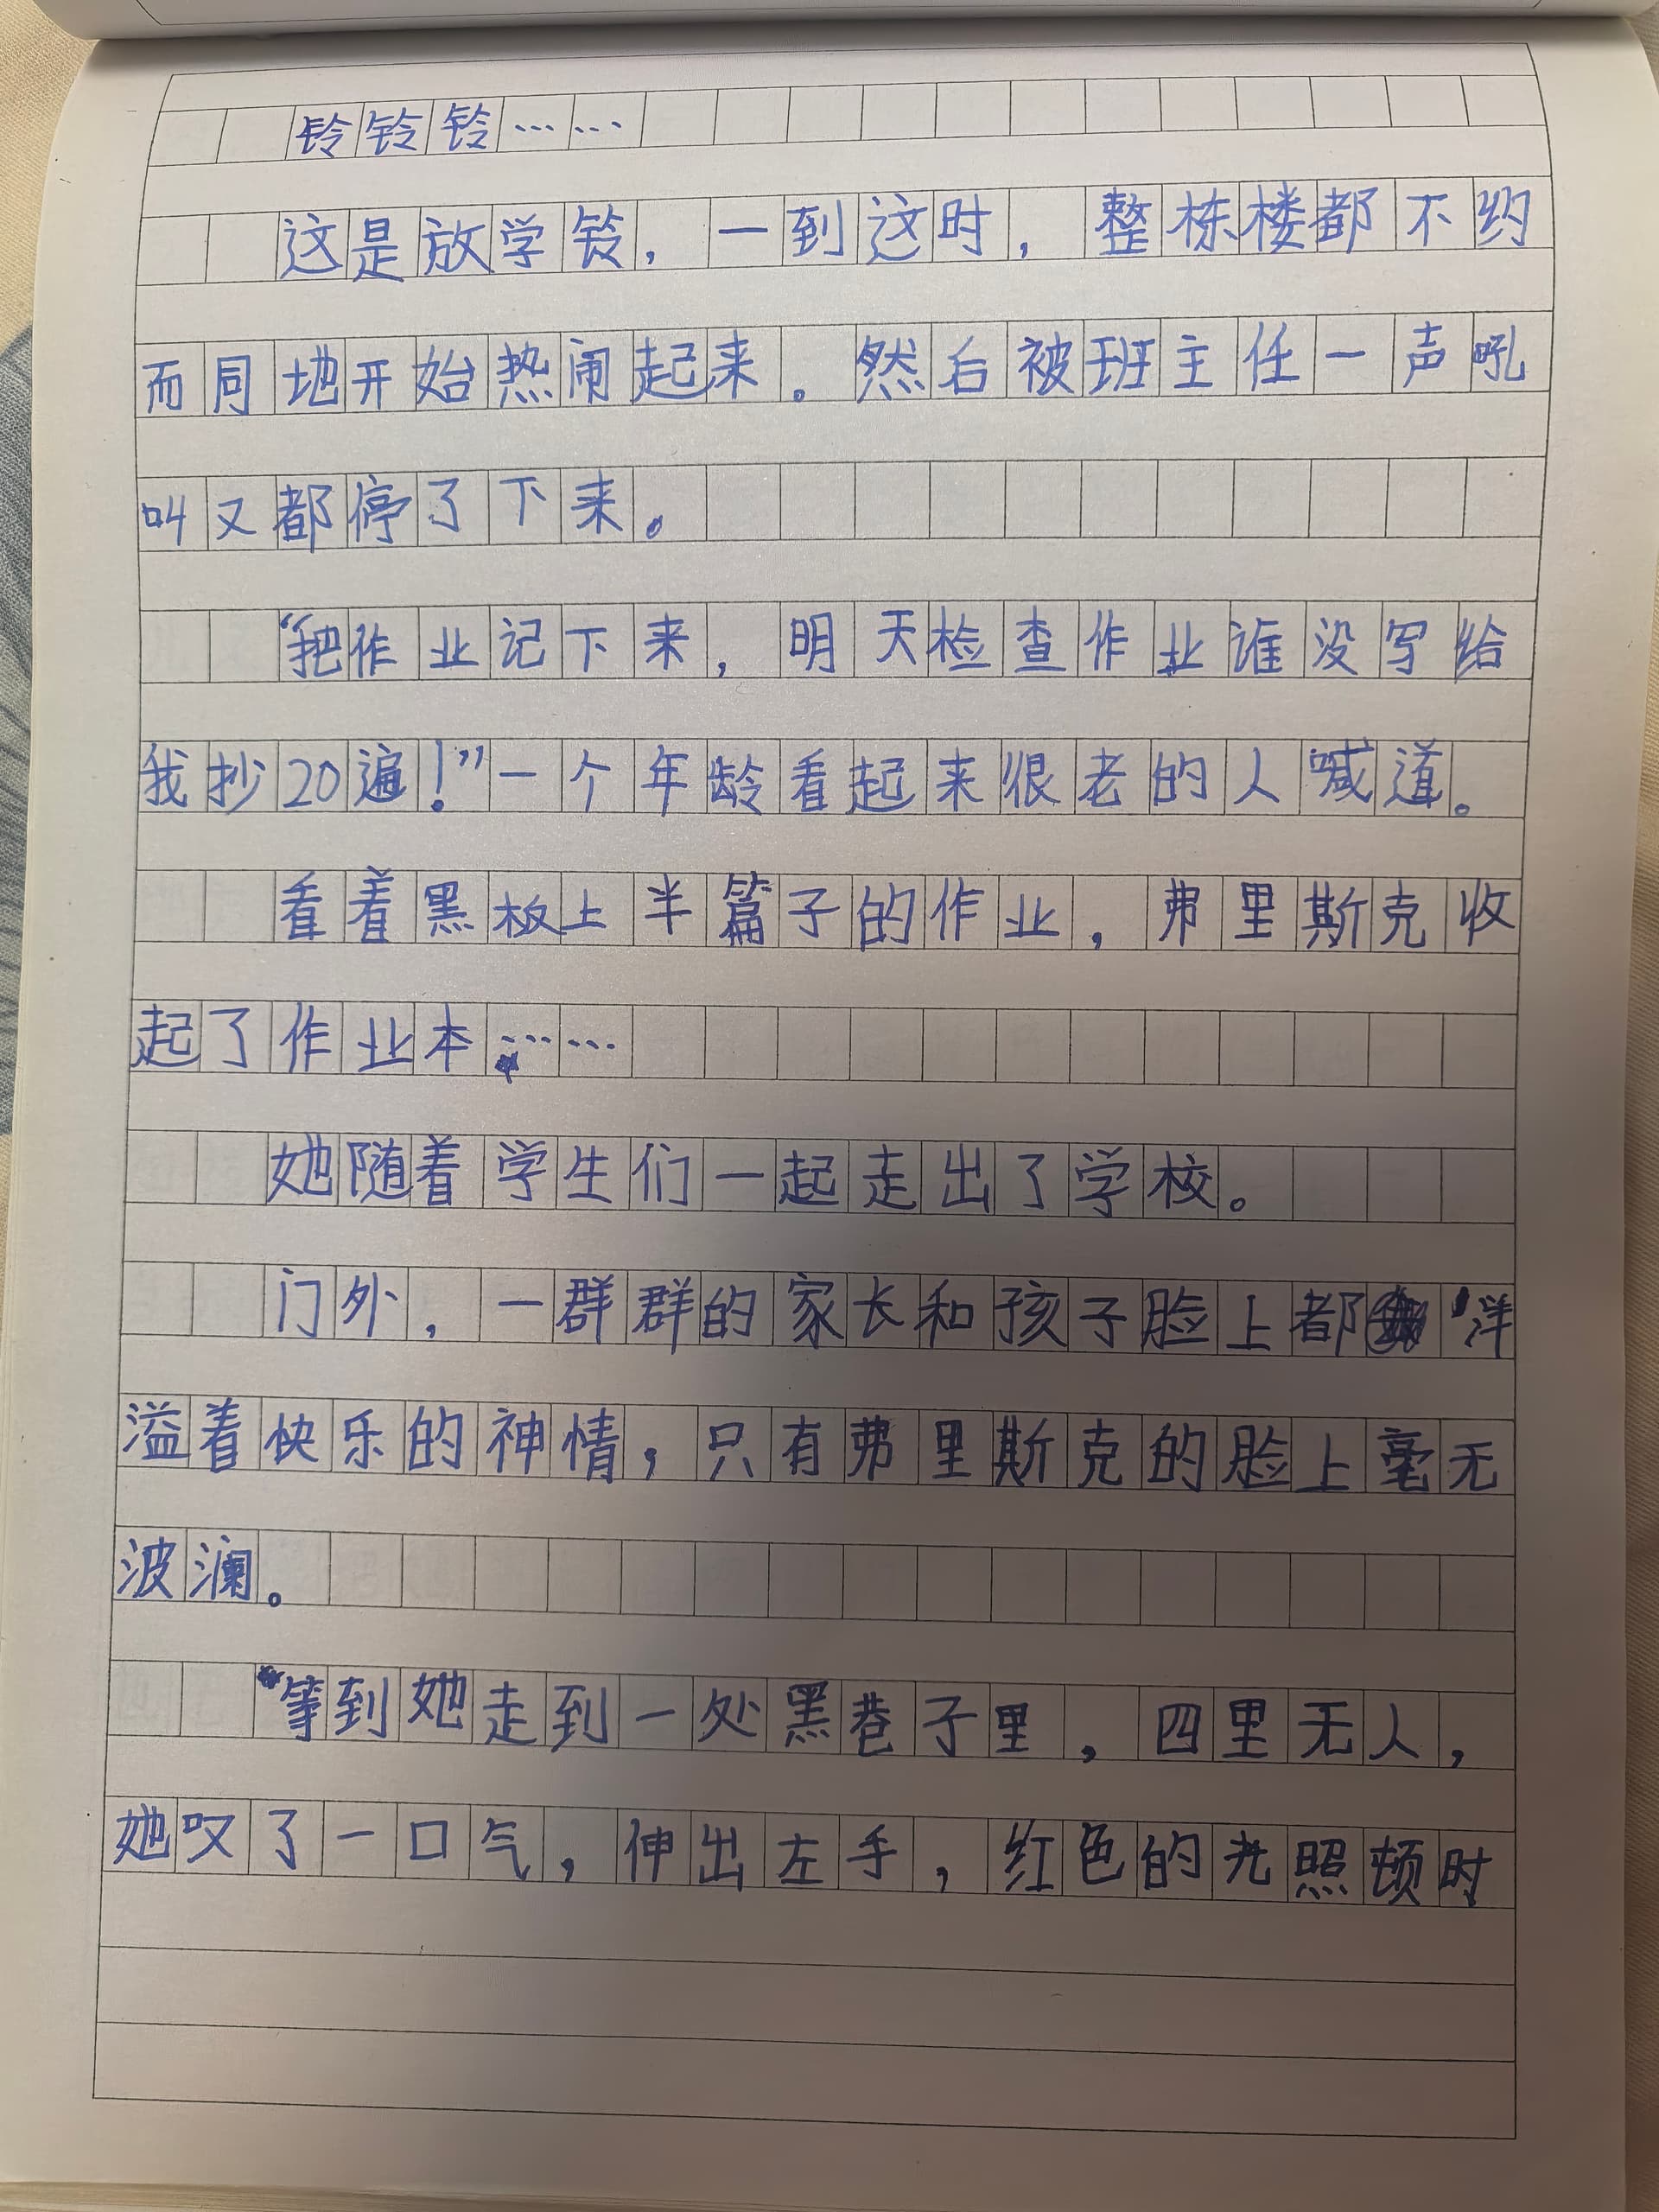 铃铃铃……
这是放学铃，一到这时，整栋楼都不约
而同地开始热闹起来。然后被班主任一声吼
叫又都停了下来。
“把作业记下来，明天检查作业谁没写给
我抄20遍！”一个年龄看起来很老的人喊道。
看着黑板上半篇子的作业，弗里斯克收
起了作业本……
她随着学生们一起走出了学校。
门外，一群群的家长和孩子脸上都洋
溢着快乐的神情，只有弗里斯克的脸上毫无
波澜。
等到她走到一处黑巷子里，四里无人，
她叹了一口气，伸出左手，红色的光照顿时